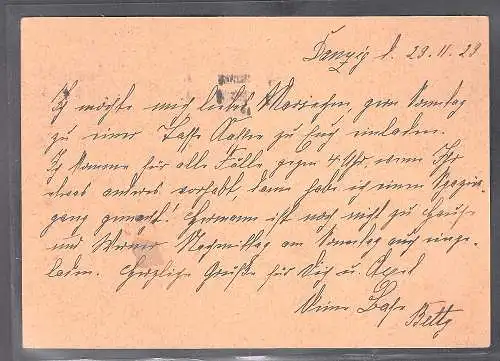 Danzig d. 23.11.28
Ich möchte mich liebes Mariechen, zum Sonntag
zu einer Tasse Kaffee zu Euch einladen.
Ich komme für alle Fälle gegen 4 Uhr, wenn Ihr
etwas anderes vorhabt, dann habe ich einen Spazier-
gang gemacht! Hermann ist noch nicht zu Hause
und Werner Nachmittag am Sonntag auch einge-
laden. Herzliche Grüße für Dich u. Axel
Deine Base
Betty